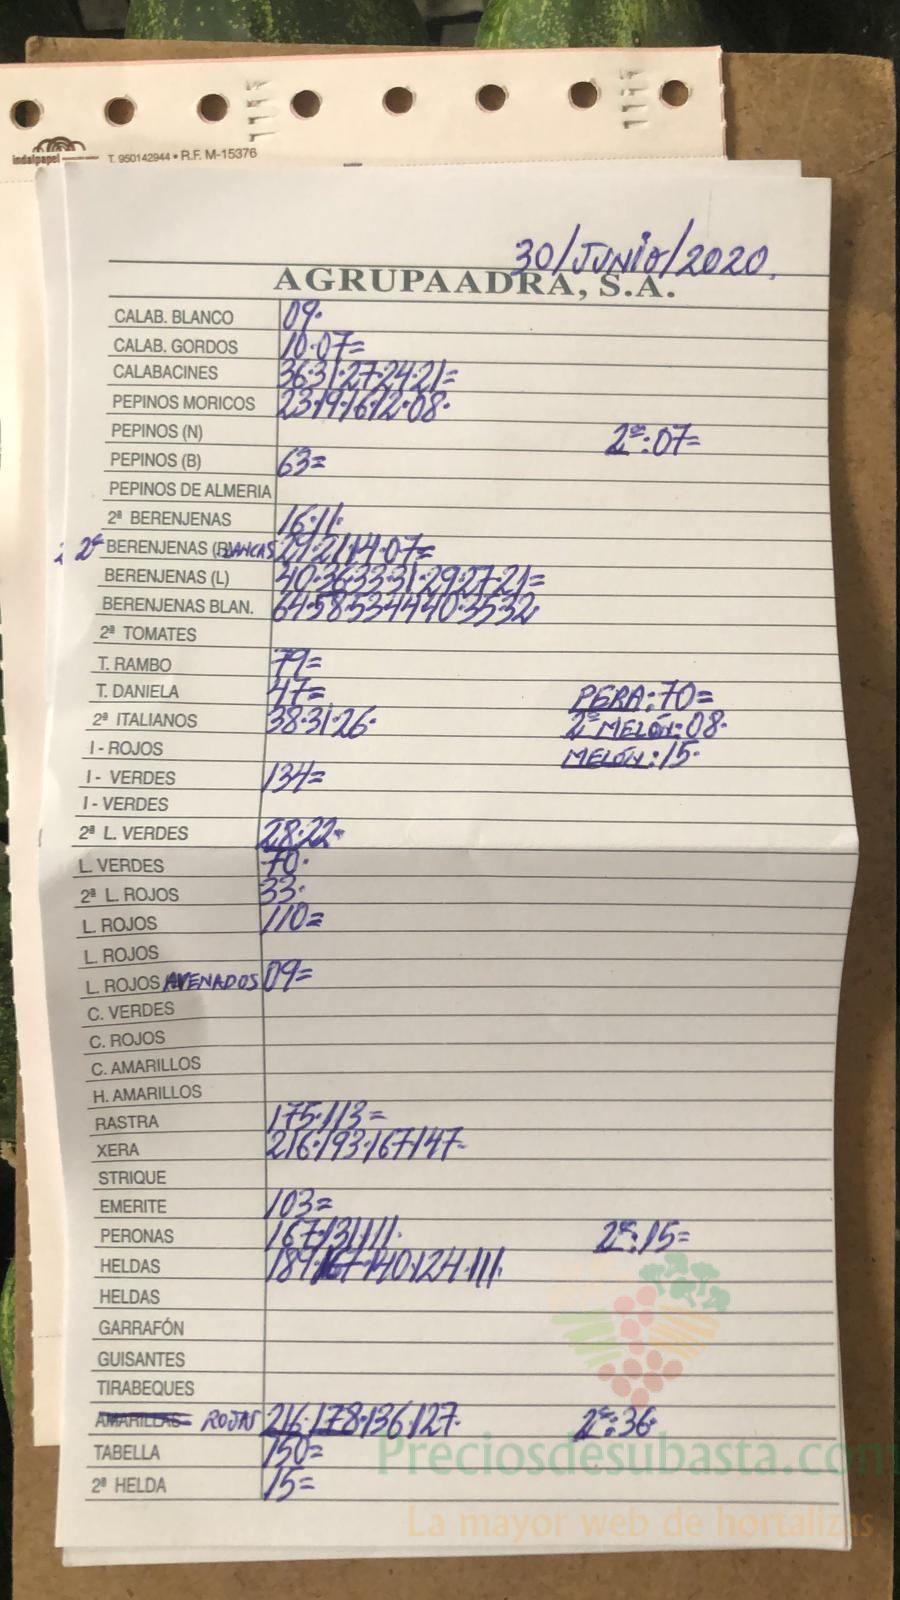 indalpapel T. 950142944 • R.F. M-15376
30/JUNIO/2020.
AGRUPAADRA, S.A.
CALAB. BLANCO 09.
CALAB. GORDOS 10.07=
CALABACINES 36.31.27.24.21=
PEPINOS MORICOS 23.19.16.12.08.
PEPINOS (N) 2ª:07=
PEPINOS (B) 63=
PEPINOS DE ALMERIA
2ª BERENJENAS 16.11.
2ª BERENJENAS (BLANCAS 29.21.14.07=
BERENJENAS (L) 40.36.33.31.29.27.21=
BERENJENAS BLAN. 64.58.53.44.40.35.32
2ª TOMATES
T. RAMBO 79=
T. DANIELA 47= PERA:70=
2ª ITALIANOS 38.31.26. 2ª MELÓN:08.
I - ROJOS MELÓN:15.
I - VERDES 134=
I - VERDES
2ª L. VERDES 28.22.
L. VERDES 70.
2ª L. ROJOS 33.
L. ROJOS 110=
L. ROJOS
L. ROJOS AVENADOS 09=
C. VERDES
C. ROJOS
C. AMARILLOS
H. AMARILLOS
RASTRA 175.113=
XERA 216.193.167.147.
STRIQUE
EMERITE 103=
PERONAS 167.131.111. 2ª:15=
HELDAS 189.167.140.124.111.
HELDAS
GARRAFÓN
GUISANTES
TIRABEQUES
AMARILLAS ROJAS 216.178.136.127. 2ª:36.
TABELLA 150=
2ª HELDA 15=
Preciosdesubasta.com
La mayor web de hortalizas